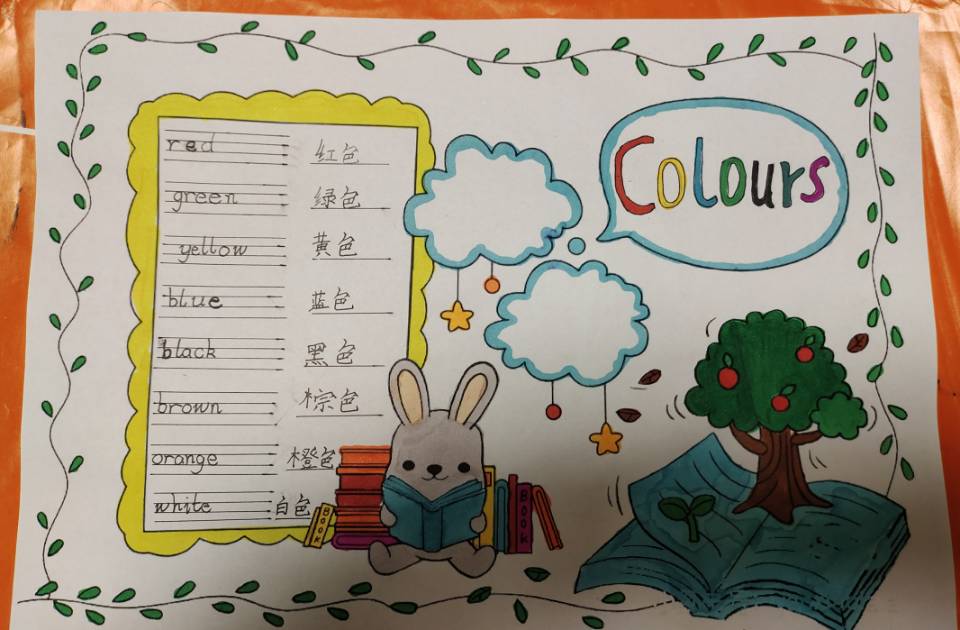 Colours
red 红色
green 绿色
yellow 黄色
blue 蓝色
black 黑色
brown 棕色
orange 橙色
white 白色
BOOK
BOOK